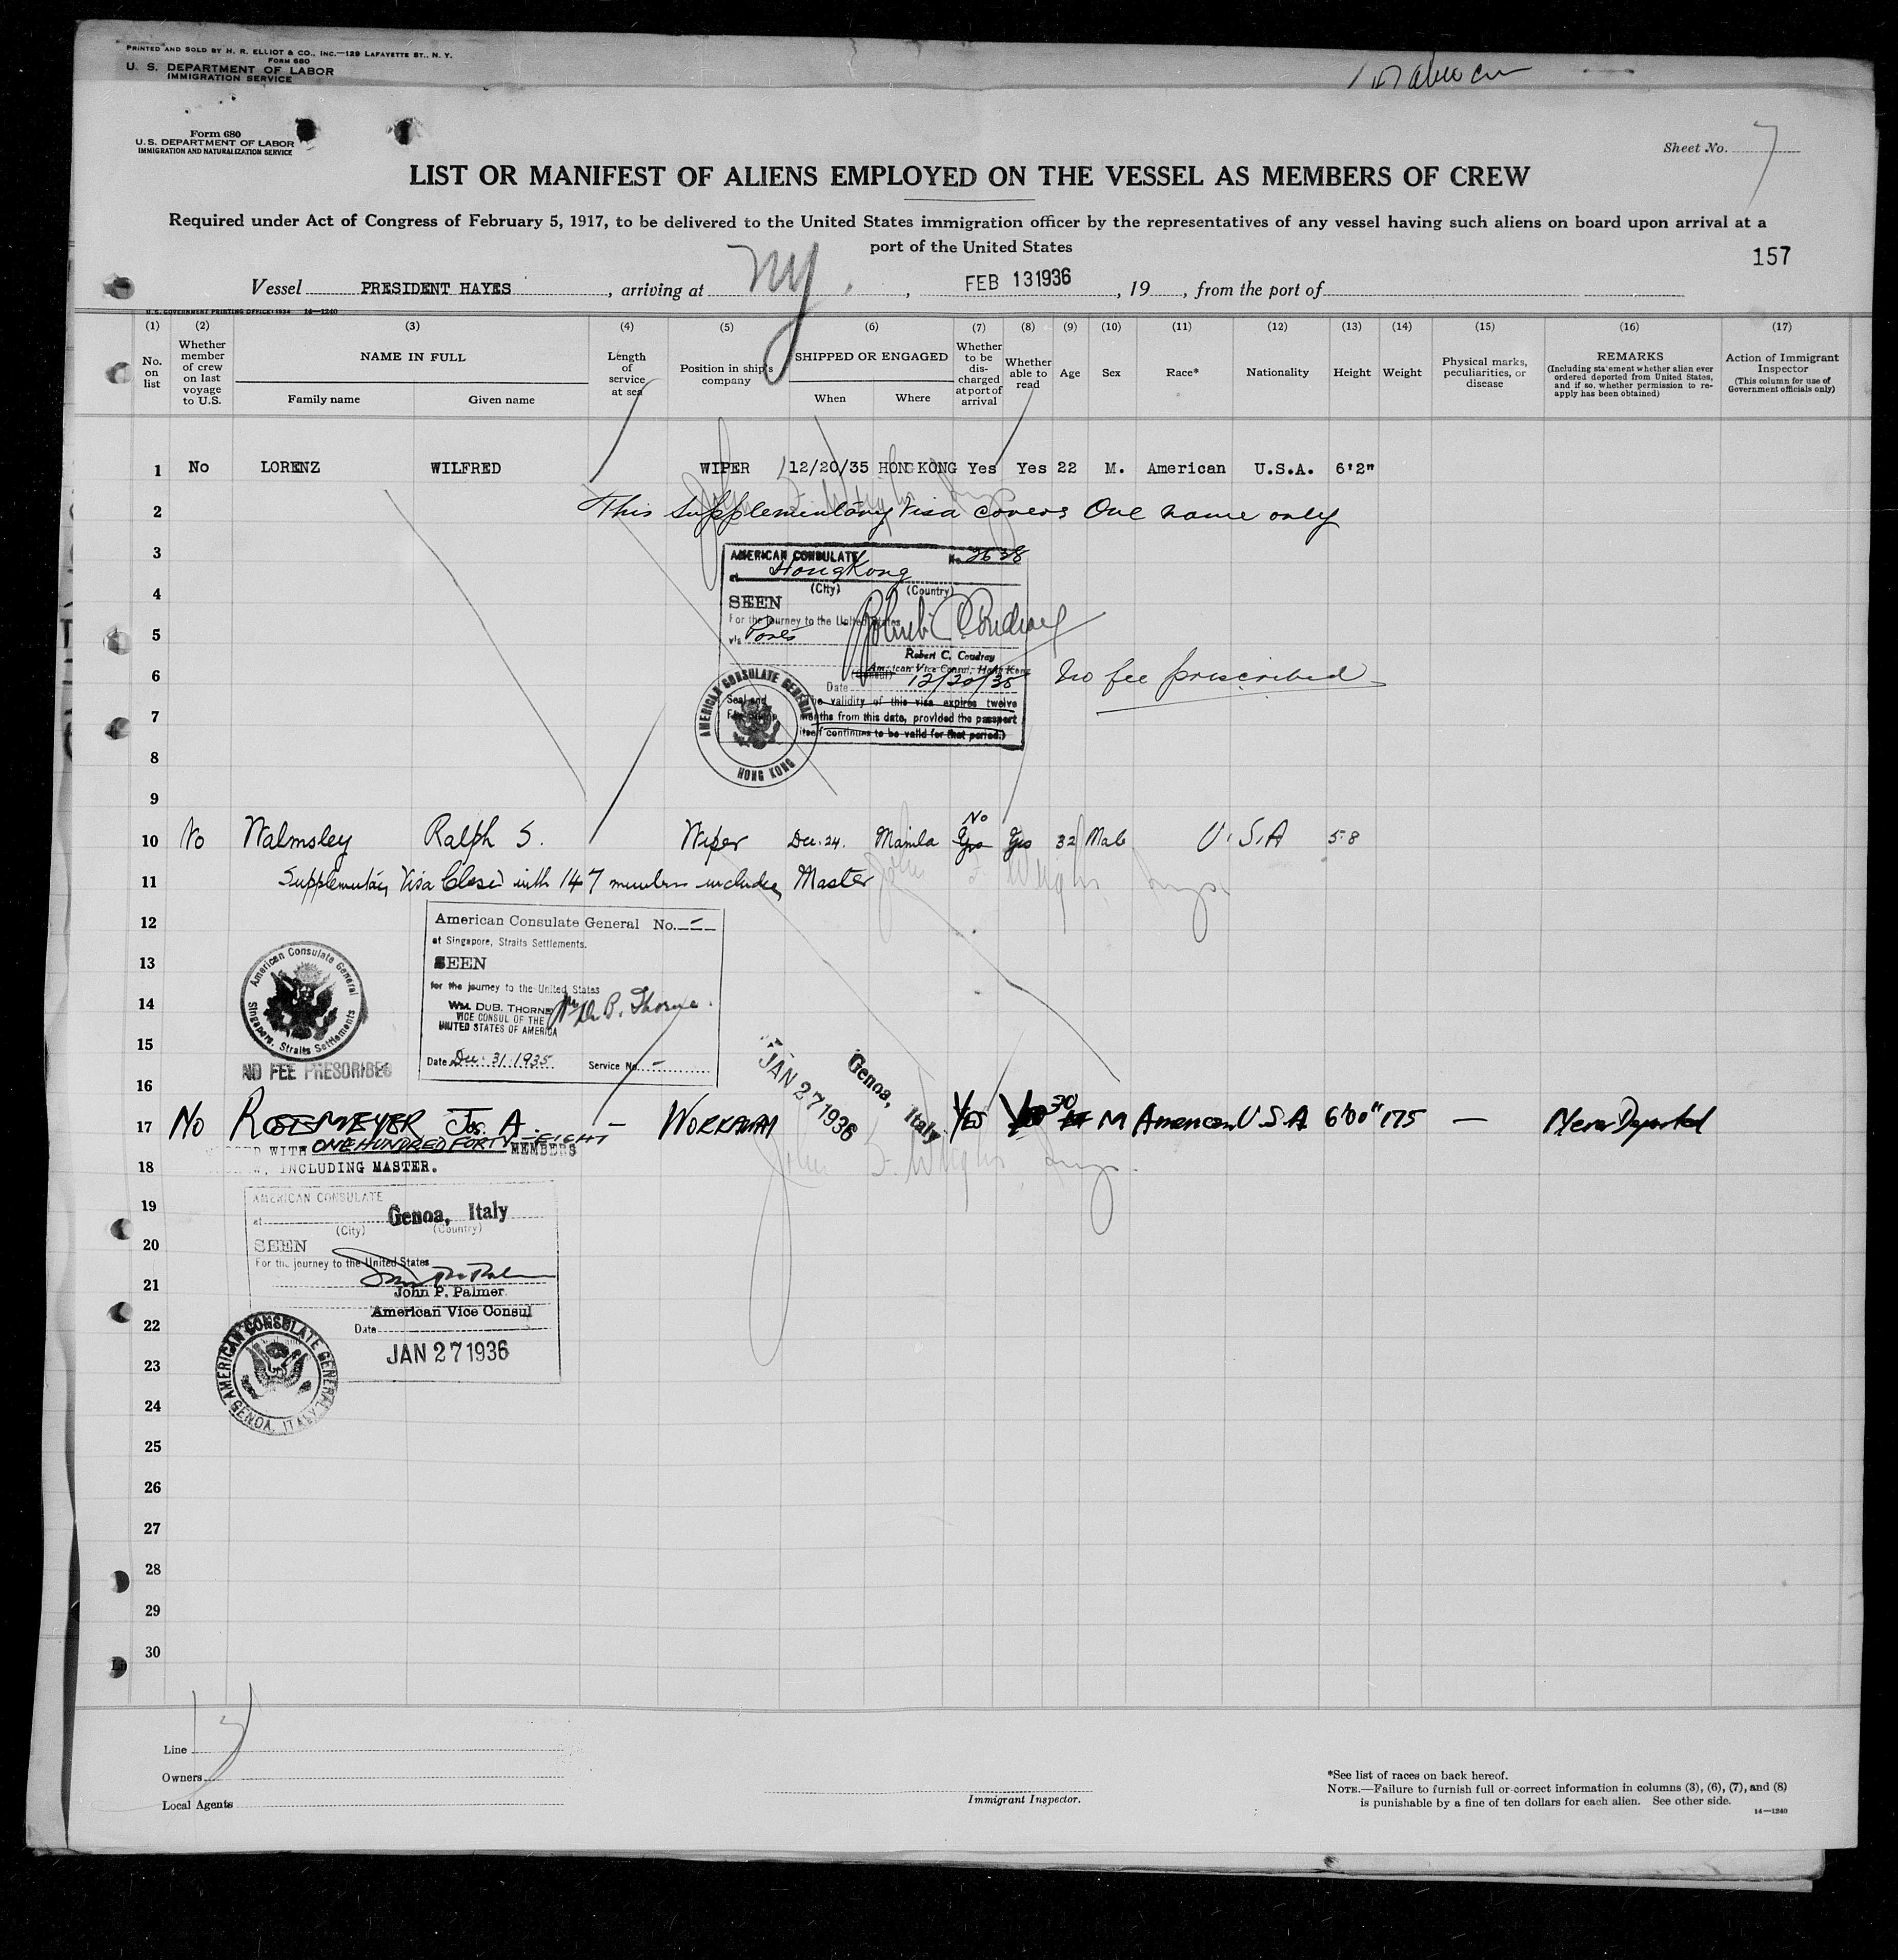 PRINTED AND SOLD BY H. R. ELLIOT & CO., INC.—129 LAFAYETTE ST., N. Y.
FORM 680
U. S. DEPARTMENT OF LABOR
IMMIGRATION SERVICE
Form 680
U.S. DEPARTMENT OF LABOR
IMMIGRATION AND NATURALIZATION SERVICE
Sheet No. 7
LIST OR MANIFEST OF ALIENS EMPLOYED ON THE VESSEL AS MEMBERS OF CREW
Required under Act of Congress of February 5, 1917, to be delivered to the United States immigration officer by the representatives of any vessel having such aliens on board upon arrival at a
port of the United States
157
Vessel PRESIDENT HAYES, arriving at NY., FEB 13 1936, 19, from the port of
U.S. GOVERNMENT PRINTING OFFICE: 1934 14—1240
(1) (2) (3) (4) (5) (6) (7) (8) (9) (10) (11) (12) (13) (14) (15) (16) (17)
No. on list
Whether member of crew on last voyage to U.S.
NAME IN FULL
Family name
Given name
Length of service at sea
Position in ship's company
SHIPPED OR ENGAGED
When
Where
Whether to be discharged at port of arrival
Whether able to read
Age
Sex
Race*
Nationality
Height
Weight
Physical marks, peculiarities, or disease
REMARKS
(Including statement whether alien ever ordered deported from United States, and if so, whether permission to re-apply has been obtained)
Action of Immigrant Inspector
(This column for use of Government officials only)
1 No LORENZ WILFRED WIPER 12/20/35 HONG KONG Yes Yes 22 M. American U.S.A. 6'2"
2 This Supplementary Visa covers One name only
3 AMERICAN CONSULATE No. 2638
at HongKong
4 (City) (Country)
SEEN
For the journey to the United States
5
via Ports
Robert C. Coudray
American Vice Consul, Hong Kong
6 Date 12/20/35 No fee prescribed
Seal and
The validity of this visa expires twelve
7 months from this date, provided the passport
itself continues to be valid for that period.)
AMERICAN CONSULATE GENERAL
HONG KONG
8
9
No
10 No Walmsley Ralph S. Wiper Dec. 24. Manila Yes Yes 32 Male U.S.A 5-8
11 Supplementary Visa Closed with 147 members including Master
12 American Consulate General No. —
at Singapore, Straits Settlements.
13 SEEN
for the journey to the United States
14 WM. DUB. THORNE Wm Du B. Thorne.
VICE CONSUL OF THE
UNITED STATES OF AMERICA
15 Date Dec. 31. 1935 Service No. —
American Consulate General
Singapore, Straits Settlements
NO FEE PRESCRIBED
JAN 27 1936
Genoa, Italy
16
17 No ROESMEYER Jos. A. — WORKAWAY YES 30 M American U S A 6'00" 175 — Never Deported
WITH ONE HUNDRED FORTY-EIGHT MEMBERS
18 INCLUDING MASTER.
John F. Wright Insp.
AMERICAN CONSULATE
19 at Genoa, Italy
(City) (Country)
20 SEEN
For the journey to the United States
21 John P. Palmer
American Vice Consul
22 Date
JAN 27 1936
23
AMERICAN CONSULATE GENERAL
GENOA, ITALY
24
25
26
27
28
29
30
Line
Owners
Local Agents
Immigrant Inspector.
*See list of races on back hereof.
NOTE.—Failure to furnish full or correct information in columns (3), (6), (7), and (8)
is punishable by a fine of ten dollars for each alien. See other side.
14—1240